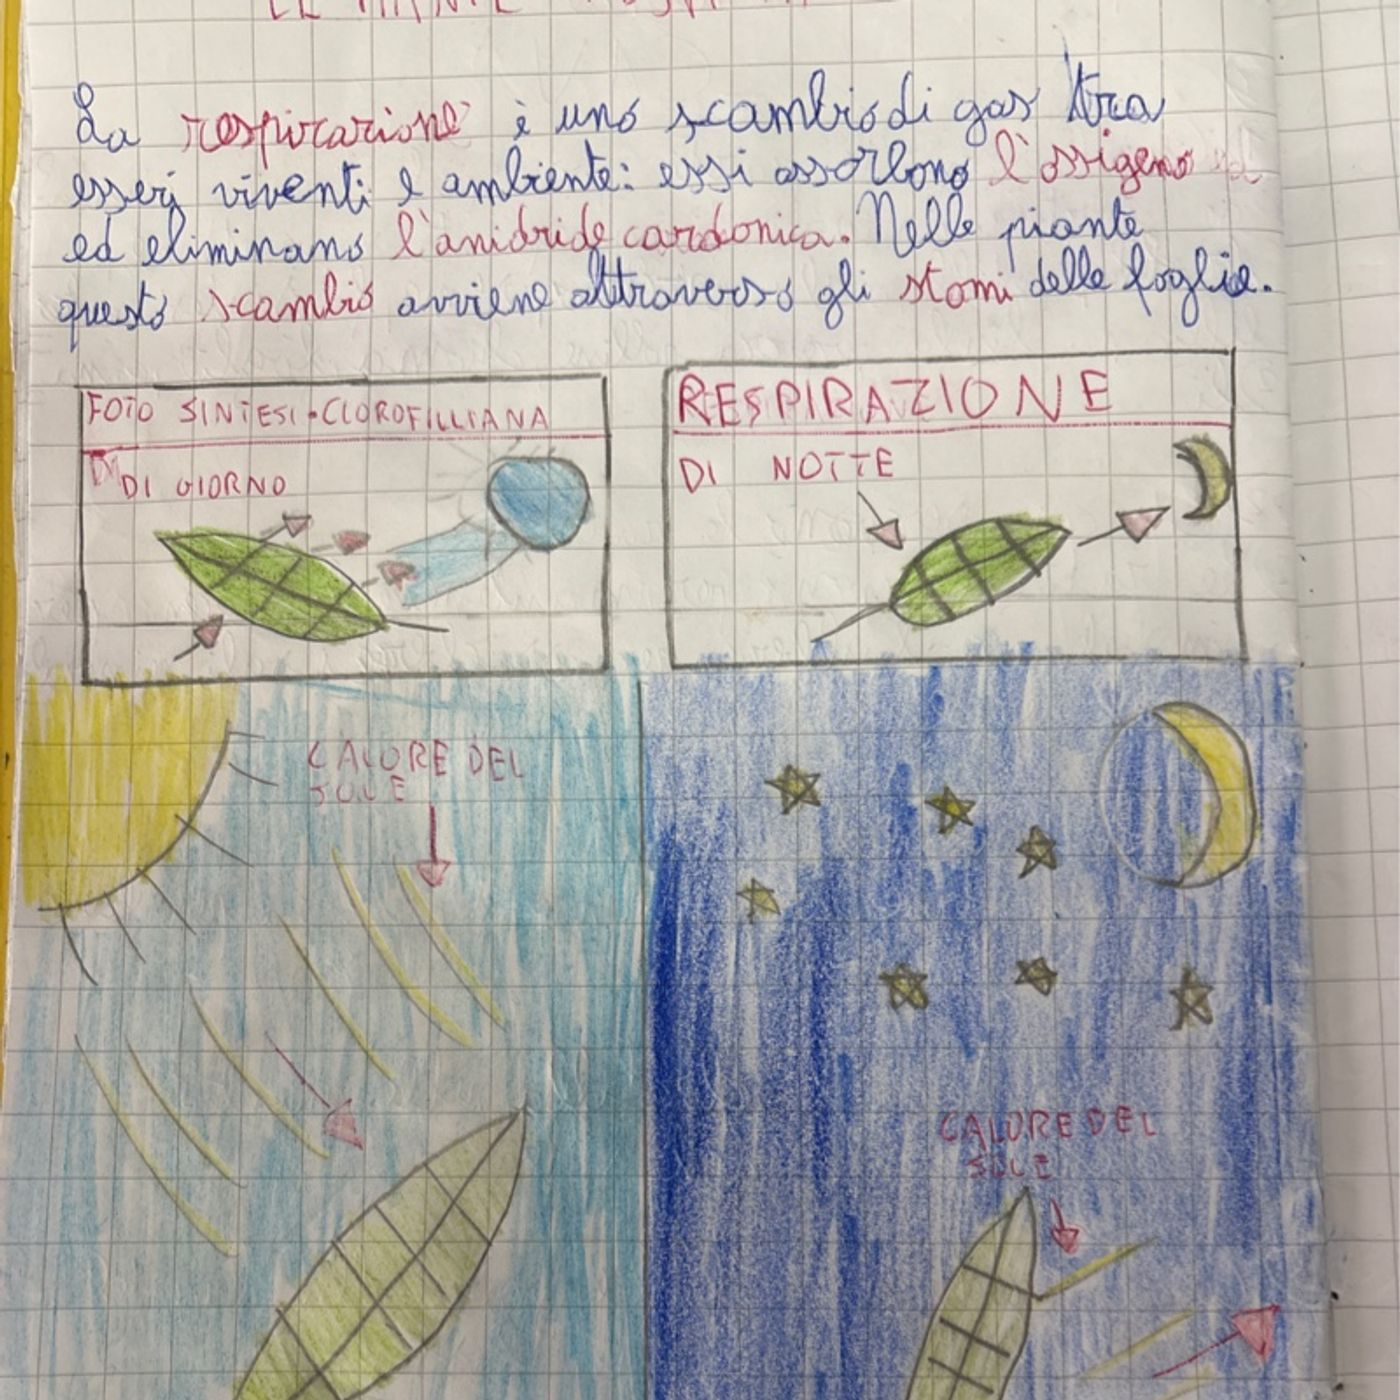 La respirazione è uno scambio di gas tra
esseri viventi e ambiente: essi assorbono l'ossigeno
ed eliminano l'anidride carbonica. Nelle piante
questo scambio avviene attraverso gli stomi delle foglie.
FOTO SINTESI-CLOROFILLIANA
DI GIORNO
RESPIRAZIONE
DI NOTTE
CALORE DEL
SOLE
CALORE DEL
SOLE